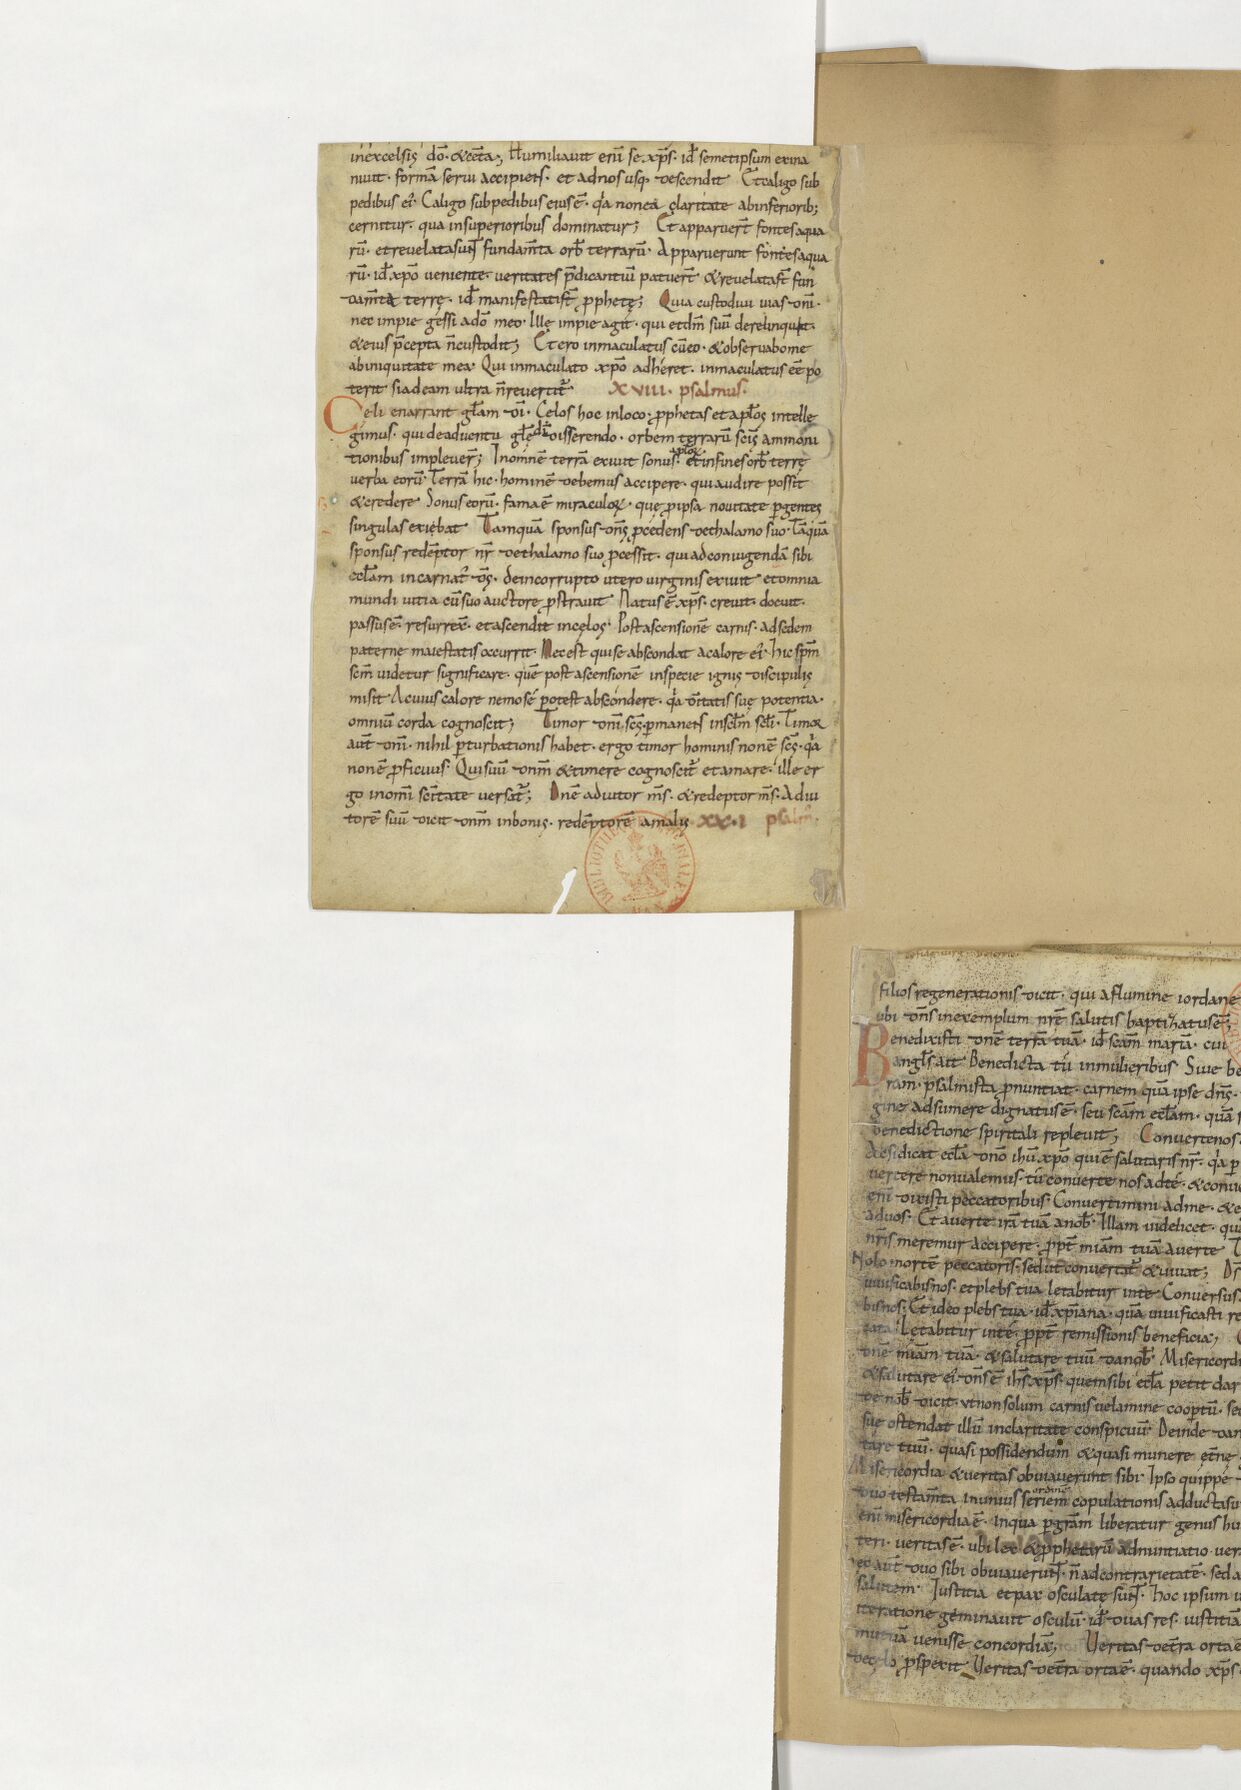 inexcelsis dō· &ceta; Humiliavit eni se xp̄s· id̄ semetipsum exina
nivit· formā servi accipiens· et adnos usq; descendit Et caligo sub
pedibus ei᾽ Caligo subpedibus eiusē· q̇a noneā claritate abinferiorib;
cernitur· qua insuperioribus dominatur; Et apparuer̄t fontesaqua
rū· etrevelatasunt fundam̄ta orb̄ terrarū· Apparuerunt fontesaqua
rū· id̄ xp̄o veniente· veritates p̄dicantiū patuer̄t &revelatas̄t fun
dam̄ta terrę· id̄ manifestatis̄t p̄phetę; Quia custodivi vias dnī·
nec impie gessi adō meo· Ille impie agit· qui etdm̄ suū derelinquit·
&eius p̄cepta n̄custodit; Et ero inmaculatus cūeo· &observabome
abiniquitate mea Qui inmaculato xp̄o adhéret· inmaculatus eē po
terit siadeam ultra n̄revertit᾽ XVIII· psalmus·
Celi enarrant gl̄am dī· Celos hoc inloco· p̄phetas et apl̄os intelle
gimus· qui deadventu gl̄ę dī disserendo· orbem terrarū sc̄is ammoni
tionibus implever̄; Inomnē terrā exivit sonus· aploꝝ etinfinesorb̄ terrę
verba eorū Terrā hic· hominē debemus accipere· qui audire possit
&credere Sonus eorū· famaē miraculoꝝ· quę p̄ipsa novitate p̄gentes
singulas exiebat Tamquā sponsus dn̄s p̄cedens dethalamo suo Tāquā
sponsus redēptor nr̄ dethalamo suo p̄cessit· qui adconiugendā sibi
eccl̄am incarnat᾽ ds̄· deincorrupto utero virginis exivit etomnia
mundi vitia cūsuo auctore p̄stravit Natus ē xp̄s· crevit· docuit·
passusē· resurrex̄· etascendit incęlos· Postascensionē carnis· adsedem
paterne maiestatis occurrit· Nec est qui se abscondat acalore ei᾽ hic spm̄
sc̄m videtur significare· quē post ascensionē inspecie ignis discipulis
misit Acuius calore nemo sé potest abscóndere· q̇a divitatis suę potentia·
omniū corda cognoscit; Timor dnī sc̄s· p̄manens insc̄lm sc̄li· Timor
aut̄ dnī· nihil p̄turbationis habet· ergo timor hominis nonē sc̄s· q̇a
nonē p̄ficuus· Qui suū dn̄m &timere cognoscit᾽ et amare· ille er
go inomnī sc̄itate versat᾽; Dnē adiutor m̄s· &redeptor m̄s· Adiu
torē suū dicit dn̄m inbonis· redēptorē amalis XX·I psalm̄·
filios regenerationis dicit· qui aflumine iordane
ubi dn̄s inexemplum nrē salutis baptizatusē;
Benedixisti dnē terrā tuā· id̄ scām mariā· cui
angl̄s ait Benedicta tū inmulieribus Sive be
ram· psalmista p̄nuntiat· carnem quā ipse dn̄s·
gine adsumere dignatusē· seu scām eccl̄am· quā s
benedictione spiritali replevit; Convertenos
dicat eccl̄a dnō ihū xp̄o quiē salutaris nr̄· q̇a p
vertere nonvalemus· tū converte nos adté· &conv
enī dixisti peccatoribus· Convertimini adme· &e
advos· Et averte irā tuā anob̄· Illam videlicet· qu
nr̄is meremur accipere· p̄pt̄ miam tuā averte
Nolo mortē peccatoris· sed ut convertat᾽ &vivat; Ds̄
vivificabisnos· etplebs tua letabitur inte Conversus
bisnos· Et ideo plebs tua· id̄ xp̄iana· quā vivificasti re
Lętabitur inté· p̄pt̄ remissionis beneficia;
dnē miam tuā· &salutare tuū danob̄· Misericordi
&salutare ei᾽ dn̄s ē ihs̄ xp̄s· quemsibi eccl̄a petit dar
de nob̄ dicit· vt non solum carnis velamine coop̄tū· sed
suę ostendat illū inclaritate conspicuū Deinde dan
tare tuū· quasi possidendum &quasi munere et̄ne
Misericordia &veritas obviaverunt sibi· Ipso quippe
duo testam̄ta inunius seriem ordine copulationis adductasu
enī misericordia ē· inqua p̄gr̄am liberatur genus hu
teri· veritas ē· ubi lex &p̄phetarū adnuntiatio ver
ec aut̄ duo sibi obviaverunt· n̄adcontrarietatē· sed a
salutem· Iustitia etpax osculate sunt· hoc ipsum v
iteratione geminavit osculū· id̄ duas res· iustitiā
mutuā venisse concordiā; Veritas det̄ra orta ē
decęlo p̄spexit Veritas det̄ra ortaē· quando xp̄s